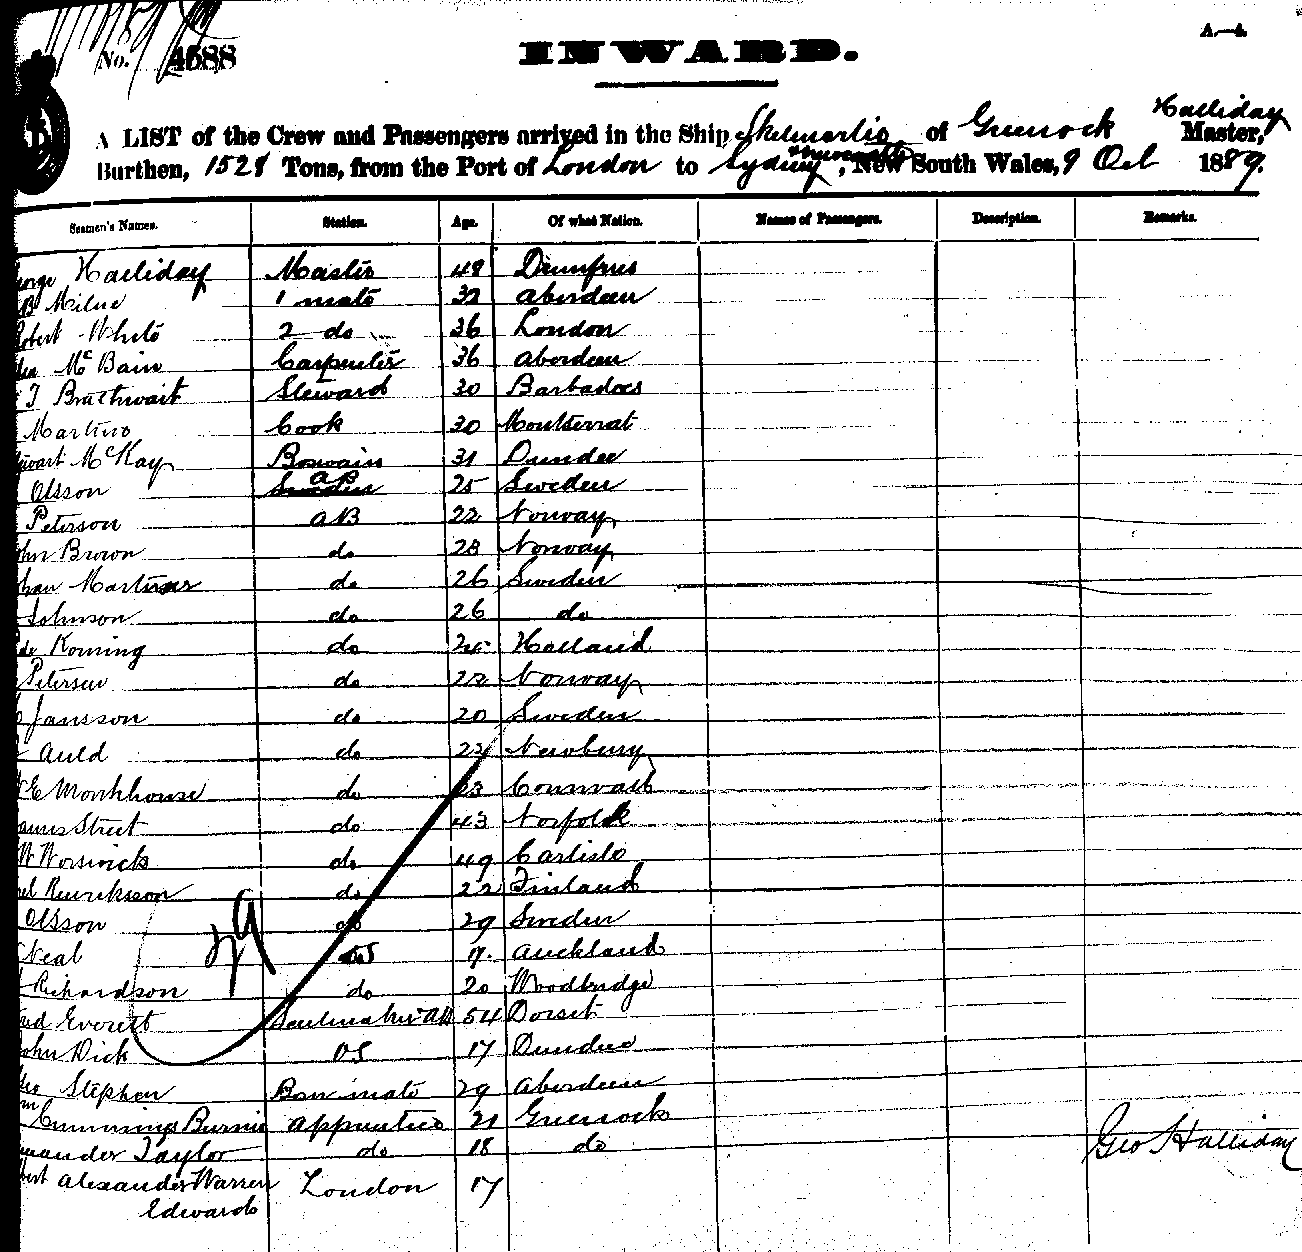 No. 4688
INWARD.
A.—4.
A LIST of the Crew and Passengers arrived in the Ship Skelmorlie of Greenock Halliday Master,
Burthen, 1528 Tons, from the Port of London to Sydney Newcastle, New South Wales, 9 Oct 1889.
Seamen's Names. Station. Age. Of what Nation. Names of Passengers. Description. Remarks.
orge Halliday Master 48 Dumfries
B Milne 1 mate 32 Aberdeen
obert White 2 do 36 London
Mc Bain Carpenter 36 Aberdeen
T Brathwait Steward 30 Barbadoes
Martin Cook 30 Montserrat
wart McKay Boswain 31 Dundee
Olsson Sweden AB 25 Sweden
Peterson AB 22 Norway
ohn Brown do 28 Norway
ohan Martin do 26 Sweden
Johnson do 26 do
de Koning do Holland
Petersen do 22 Norway
Jansson do 20 Sweden
Auld do Newbury
E Monkhouse do 23 Cornwall
ames Street do 43 Norfolk
W Worswick do 49 Carlisle
el Henriksson do 22 Finland
Olsson do 29 Sweden
Neal OS Auckland
Richardson do 20 Woodbridge
Everett Sailmaker AB 54 Dorset
29
ohn Dick OS 17 Dundee
Stephen Bosn mate 29 Aberdeen
m Cumming Burnie Apprentice 21 Greenock
exander Taylor do 18 do
Geo Halliday
bert Alexander Warren London 17
Edwards